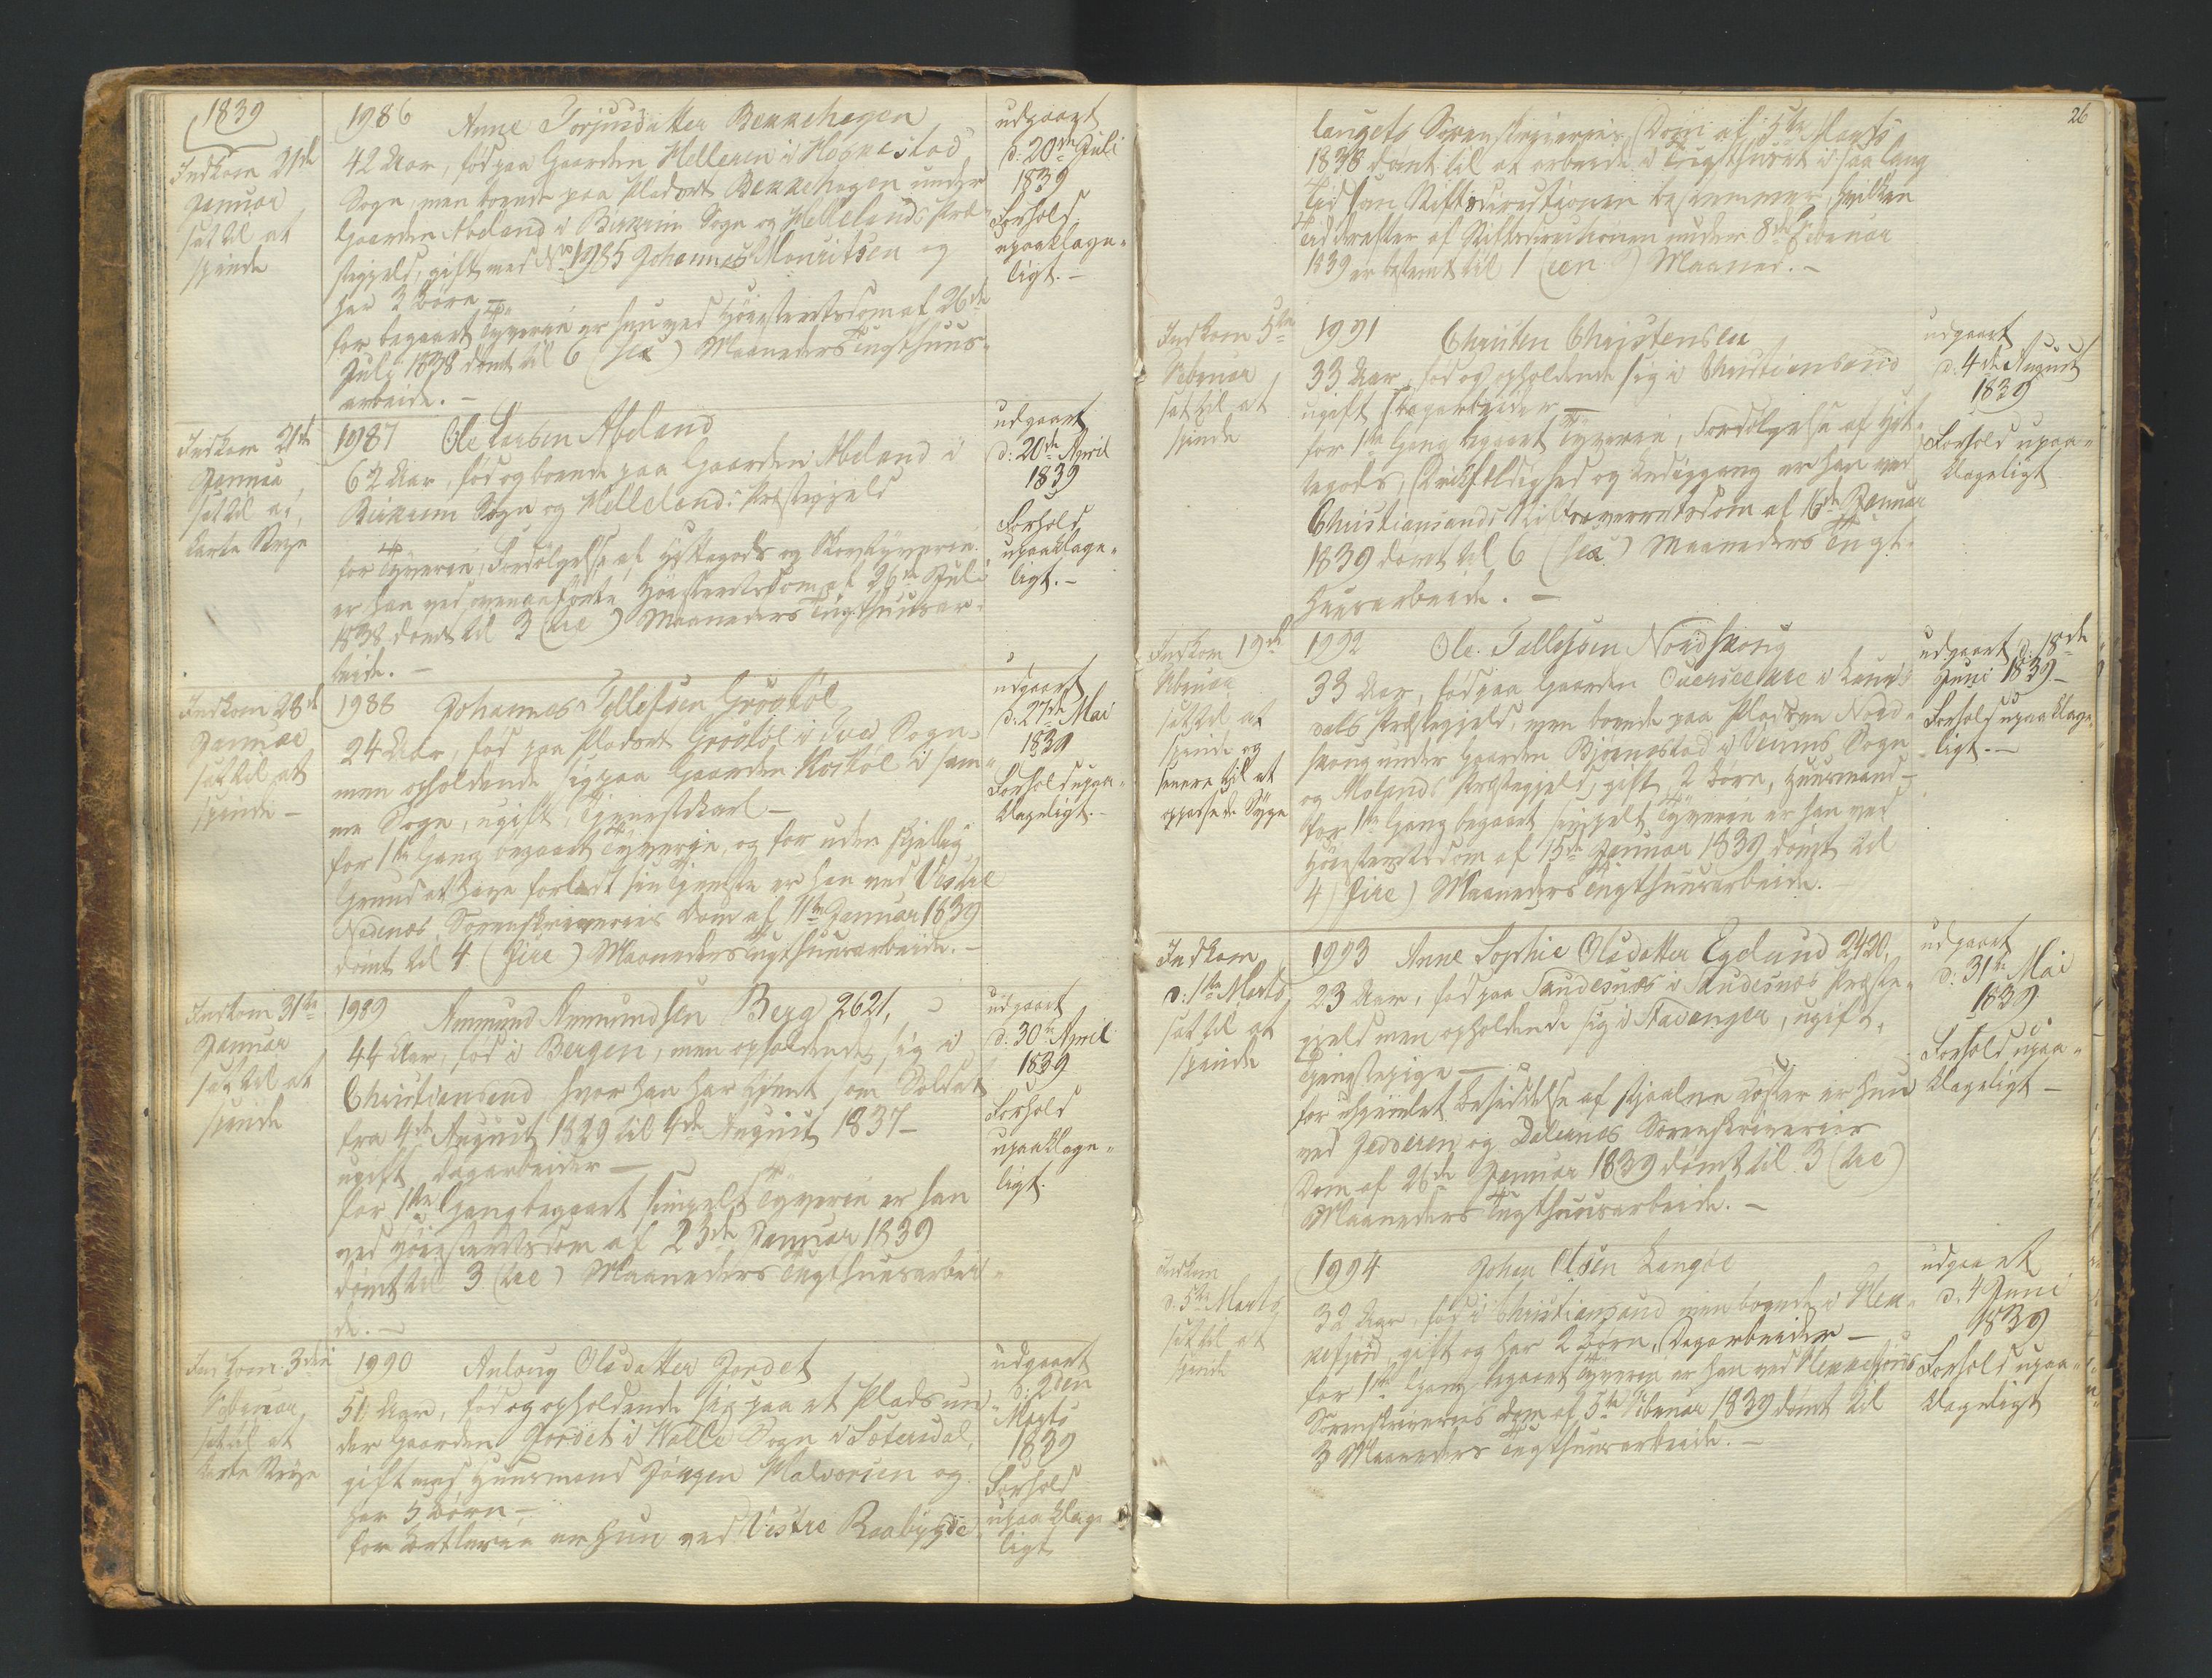 1839
Indkom 21de
Januar
sat til at
spinde
1986 Anne Torjusdatter Bekkehagen
42 Aar, fød paa Gaarden Helleren i Høgnestad
Sogn, men boende paa Pladset Bekkehagen under
Gaarden Abeland i Birkrem Sogn og Hellelands Præ-
stegjeld, gift med No 1985 Johannes Mouritsen og
har 3 Børn –
for begaaet Tyverie er hun ved Høiesteretsdom af 26de
July 1838 dømt til 6 (sex) Maaneders Tugthuus-
arbeide. –
udgaaet
d: 20de Juli
1839
Forhold
upaaklage-
ligt. –
Indkom 21de
Januar
sat til at
karte Strye
1987 Ole Larsen Abeland
62 Aar, fød og boende paa Gaarden Abeland i
Birkrem Sogn og Hellelands Præstegjeld
for Tyverie, Fordølgelse af Hittegods og Skovtyverie
er han ved ovenanførte Høiesteretsdom af 26de Juli
1838 dømt til 3 (tre) Maaneders Tugthuusar-
beide. –
udgaaet
d: 20de April
1839
Forhold
upaaklage-
ligt. –
Indkom 28de
Januar
sat til at
spinde –
1988 Johannes Tellefsen Grøstøl
24 Aar, fød paa Pladset Grøstøl i Sogn,
men opholdende sig paa Gaarden i sam-
me Sogn, ugift, Tjenestekarl –
for 1ste Gang begaaet Tyverie, og for uden skjellig
Grund at have forladt sin Tjeneste er han ved Vestre
Nedenæs Sorenskriveries Dom af 11te Januar 1839
dømt til 4 (fire) Maaneders Tugthuusarbeide. –
udgaaet
d: 27de Mai
1839
Forhold upaa-
klageligt. –
Indkom 31te
Januar
sat til at
spinde
1989 Ammund Ammundsen Berg 2621,
44 Aar, fød i Bergen, men opholdende sig i
Christiansand hvor han har tjent som Soldat
fra 4de August 1829 til 4de August 1837 –
ugift Dagarbeider –
for 1ste Gang begaaet simpelt Tyverie er han
ved Høiesteretsdom af 23de Januar 1839
dømt til 3 (tre) Maaneders Tugthuusarbei-
de. –
udgaaet
d: 30te April
1839
Forhold
upaaklage-
ligt.
Indkom 3die
Februar
sat til at
karte Strye
1990 Anlaug Olsdatter Jordet
51 Aar, fød og opholdende sig paa et Plads un-
der Gaarden Jordet i Walle Sogn i Sætersdal,
gift med Huusmand Jørgen Halvorsen og
har 5 Børn –
for Betlerie er hun ved Vestre Raabygde-
udgaaet
d: 2den
Marts
1839
Forhold
upaaklage-
ligt
26
laugets Sorenskriveries Dom af 5te Marts
1838 dømt til at arbeide i Tugthuset i saa lang
Tid som Stiftsdirectionen bestemmer, hvilken
Tid derefter af Stiftsdirectionen under 8de Februar
1839 er bestemt til 1 (een) Maaned. –
Indkom 5te
Februar
sat til at
spinde
1991 Christen Christensen
33 Aar, fød og opholdende sig i Christiansand
ugift, Dagarbeider –
for 1ste Gang begaaet Tyverie, Fordølgelse af Hit-
tegods, Drikfældighed og Lediggang er han ved
Christiansands Stiftsoverretsdom af 16de Januar
1839 dømt til 6 (sex) Maaneders Tugt-
huusarbeide. –
udgaaet
d: 4de August
1839
Forhold upaa-
klageligt
Indkom 19de
Februar
sat til at
spinde og
senere til at
oppasse de Syge
1992 Ole Tallefsen Nordskoug
33 Aar, fød paa Gaarden i Laur-
dals Præstegjeld, men boende paa Pladsen Nord-
skoug under Gaarden Bjørnestad i Veums Sogn
og Molands Præstegjeld, gift, 2 Børn, Huusmand –
for 1ste Gang begaaet simpelt Tyverie er han ved
Høiesteretsdom af 15de Januar 1839 dømt til
4 (fire) Maaneders Tugthuusarbeide.
udgaaet d: 18de
Juni 1839 –
Forhold upaaklage-
ligt. –
Indkom
d: 1ste Marts
sat til at
spinde
1993 Anne Sophie Olsdatter Egelund 2420,
23 Aar, fød paa Sandesnæs i Sandesnæs Præste-
gjeld men opholdende sig i Stavanger, ugift,
Tjenestepige –
for uhjemlet Besiddelse af stjaalne Koster er hun
ved Jedderen og Dalernes Sorenskriveries
Dom af 26de Januar 1839 dømt til 3 (tre)
Maaneders Tugthuusarbeide. –
udgaaet
d: 31te Mai
1839
Forhold upaa-
klageligt –
Indkom
d: 5te Marts
sat til at
spinde
1994 Johan Olsen Langøe
32 Aar, fød i Christiansand men boende i Flek-
kefjord, gift og har 2 Børn, Dagarbeider –
for 1ste Gang begaaet Tyverie er han ved Flekkefjords
Sorenskriveries Dom af 5te Februar 1839 dømt til
3 Maaneders Tugthuusarbeide. –
udgaaet
d: 4 Juni
1839
Forhold upaa-
klageligt